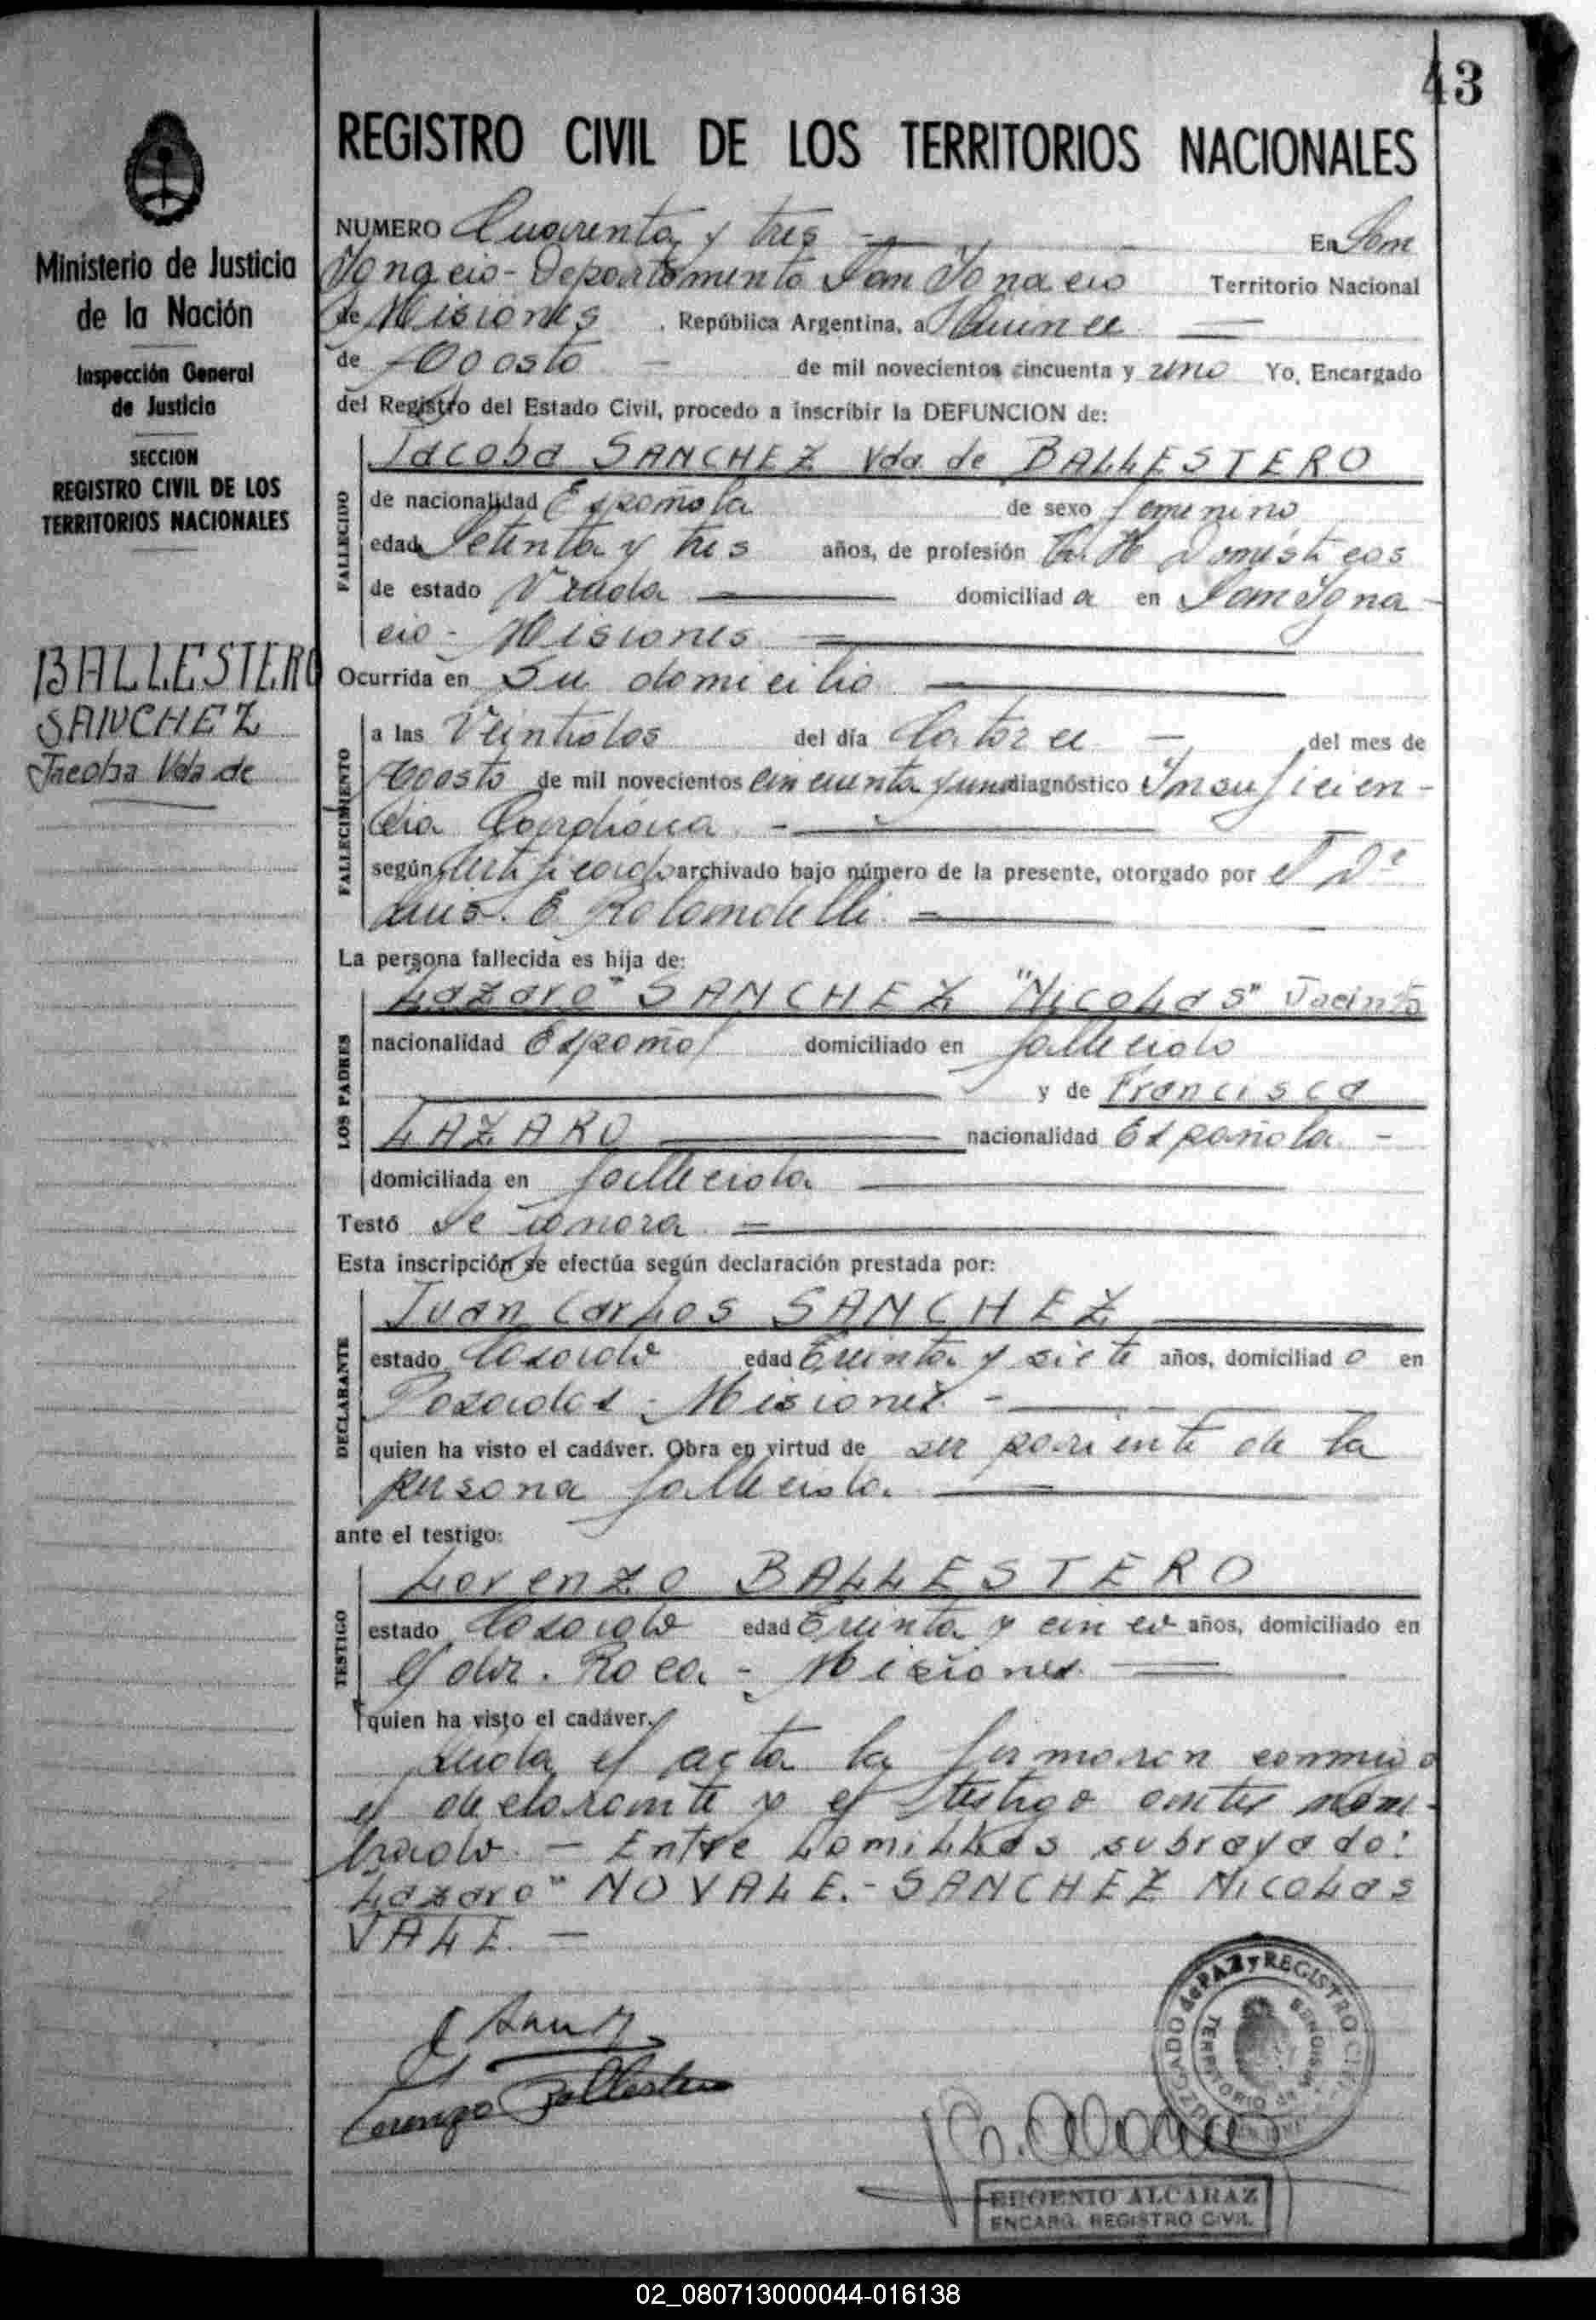 43
REGISTRO CIVIL DE LOS TERRITORIOS NACIONALES
Ministerio de Justicia
de la Nación
Inspección General
de Justicia
SECCION
REGISTRO CIVIL DE LOS
TERRITORIOS NACIONALES
BALLESTERO
SANCHEZ
Jacoba Vda de
NUMERO Cuarenta y tres En San
Ignacio - Departamento San Ignacio Territorio Nacional
de Misiones , República Argentina, a Quince
de Agosto de mil novecientos cincuenta y uno Yo, Encargado
del Registro del Estado Civil, procedo a inscribir la DEFUNCION de:
FALLECIDO
Jacoba SANCHEZ Vda de BALLESTERO
de nacionalidad Española de sexo femenino
edad Setenta y tres años, de profesión Domésticos
de estado Viuda domiciliad a en San Igna-
cio - Misiones
Ocurrida en Su domicilio
FALLECIMIENTO
a las Veintidos del día Catorce del mes de
Agosto de mil novecientos cincuenta y uno diagnóstico Insuficien-
cia Cardiaca
según certificado archivado bajo número de la presente, otorgado por el Dr
Luis. E Rolamdelli
La persona fallecida es hija de:
LOS PADRES
Lazaro" SANCHEZ "Nicolas" Jacinto
nacionalidad Español domiciliado en fallecido
y de Francisca
LAZARO nacionalidad Española -
domiciliada en fallecida
Testó Se ignora
Esta inscripción se efectúa según declaración prestada por:
DECLARANTE
Juan Carlos SANCHEZ
estado Casado edad Treinta y siete años, domiciliad o en
Posadas - Misiones -
quien ha visto el cadáver. Obra en virtud de ser pariente de la
persona fallecida.
ante el testigo:
TESTIGO
Lorenzo BALLESTERO
estado Casado edad Treinta y cinco años, domiciliado en
Gdor. Roca - Misiones
quien ha visto el cadáver.
Leida el acta la firmaron conmigo
el declarante y el testigo antes nom-
brado. - Entre Comillas subrayado:
Lazaro" NO VALE.- SANCHEZ Nicolas
VALE. -
Lorenzo Ballestero
JUZGADO de PAZ y REGISTRO CIVIL
TERRITORIO de MISIONES
EUGENIO ALCARAZ
ENCARG. REGISTRO CIVIL
02_080713000044-016138